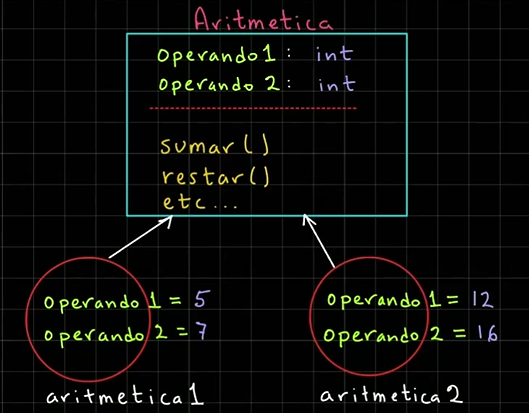 Aritmetica
operando1: int
operando 2: int
sumar()
restar()
etc...
operando 1 = 5
operando 2 = 7
aritmetica1
operando 1 = 12
operando 2 = 16
aritmetica2